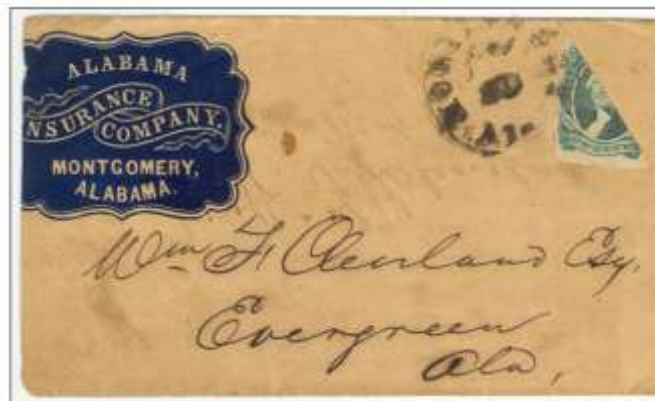 ALABAMA
INSURANCE
COMPANY.
MONTGOMERY,
ALABAMA.
Wm F Cleveland Esq.
Evergreen
Ala,